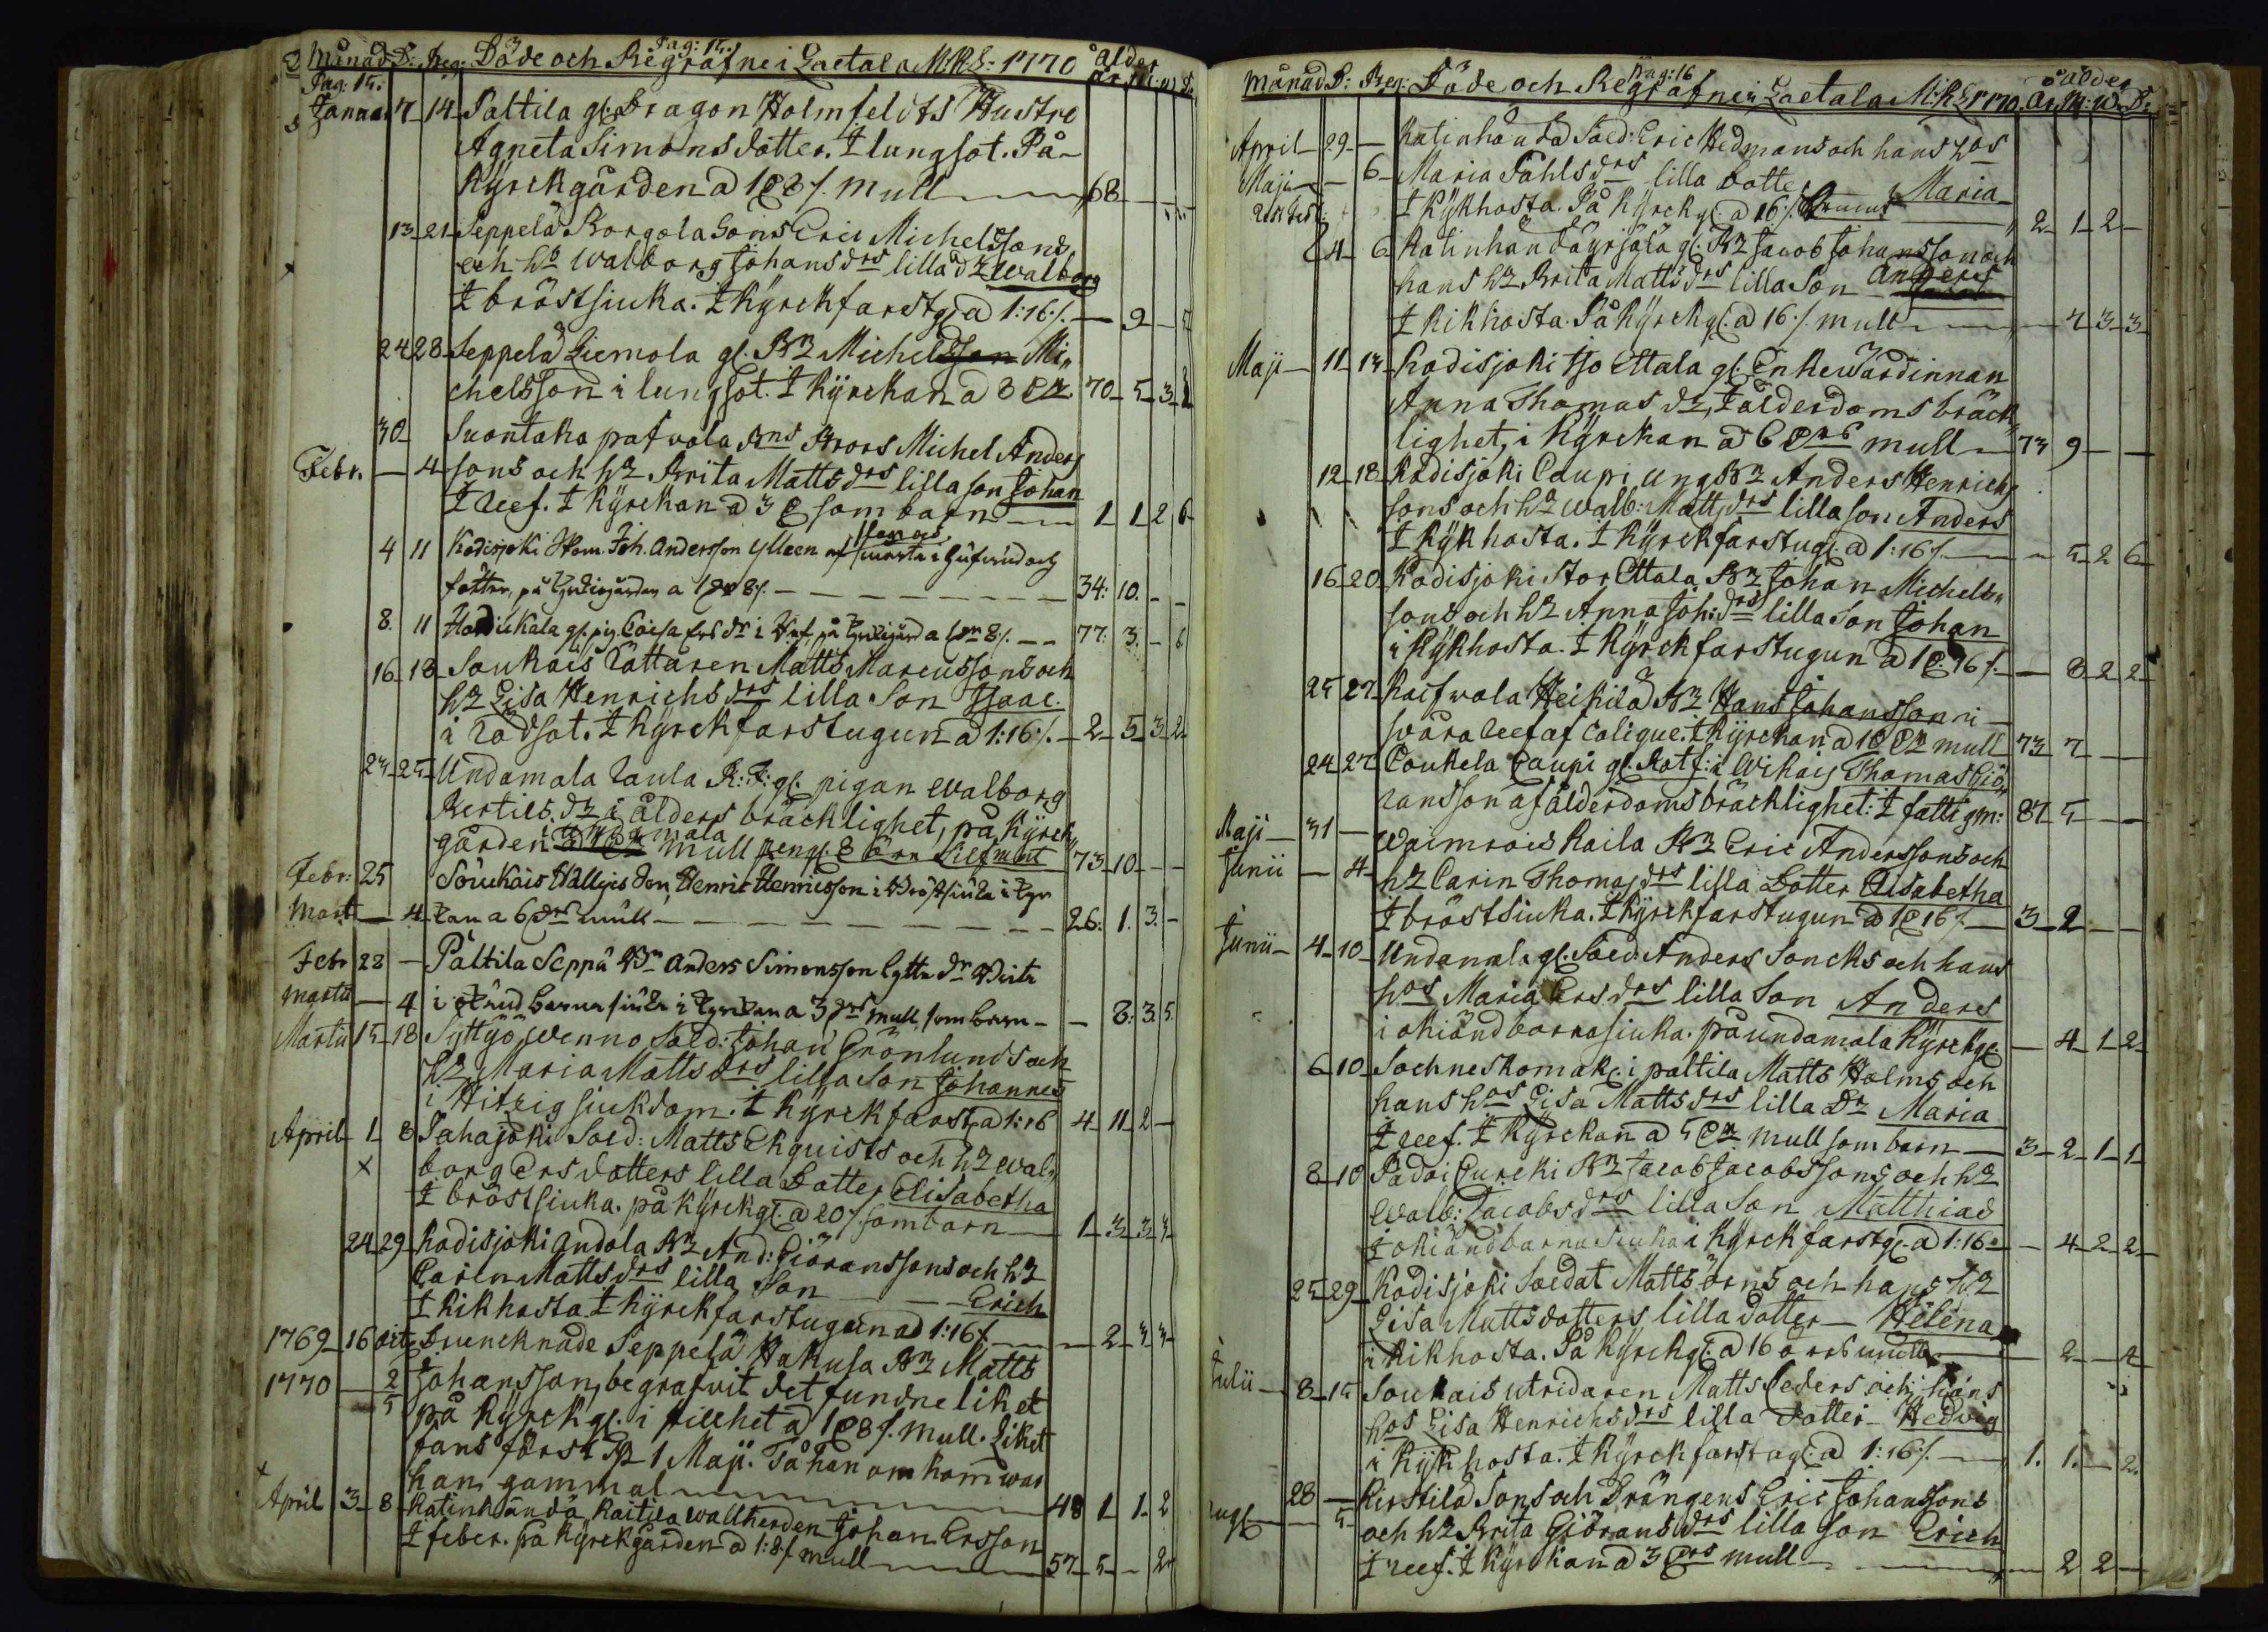 Pag: 15.
Månad D: Beg: Döde och Begrafne i Laetala M:K:L: 1770 ålder
Pag: 15. år. M: W D:
Januar 7 14 Paltila gl: Dragon Holmfeldts Hustro
Agneta Simonsdotter. I lungsot. På
Kyrckgården a 1 8 /. mull 68
13 21 Seppelä Borgola Sons Eric Michelssons
och h. Walborg Johansdrs lilla d. Walborg
I bröstsiuka. I Kyrckfarstg: a 1:16 /. 9
24 28 Seppelä Liemola gl. Michelsson Mi„
chelsson i lungsot. I Kyrckan a 3 70 5 3
30 Suontaka Brors Michel Anders
Febr. 4 sons och h. Brita Mattsdrs lilla son Johan
I reef. I Kyrckan a 3 som barn 1 1 2 6
4 11 Kodisjoki Joh. Andersson Ylleen af
fötter, på Kyrckogården a 1 8 /. 34: 10.
8. 11 gl. pig. Caisa på a 8 /. 77: 3. 6
16 18 Soukais Rättaren Matts Marcussons och
h. Lisa Henrichsdrs lilla Son Isaac.
i rödsot. I Kyrckfarstugun a 1:16 /. 2 5 3 2
25 Undamala Taula gl. pigan Walborg
Bertils dr i ålders bräcklighet, på Kyrck
gården mala mull 73 10
Febr: 25 Soukais Wallgis Son, Henric Henricsson i Bröstsiuka i Kyr
Mart 4 kan a 6 mull 26: 1. 3.
Febr 28 Paltila Seppä Anders Simonsson dr Brita
Martii 4 i okänd barnasiuka i Kyrckan a 3 mull som barn 8: 3 5.
Martii 15 18 Syttyö Wenno Sold: Johan Grönlunds och
h. Maria Mattsdrs lilla Son Johannes
i Hitzig siukdom. I Kyrckfarst a 1:16 4 11 2
April 1 8 Pahajoki Sold: Matts Ekquists och h. Wal„
x borg Ersdotters lilla Dotter Elisabetha
I bröstsiuka. på Kyrckg: a 20 /. som barn 1 3 3
24 29 Kodisjoki Andola And: Giöranssons och h.
Carin Mattsdrs lilla Son Erich
I Kikhosta I Kyrckfarstugun a 1:16 /. 2 3
1769 16 Druncknade Seppelä Hakula Matts
1770 2 Johansson, begrafvit det fundne liket
5 på Kyrckg: i stillhet a 1 8 /. mull. Liket
fans först 1 Maji. Då han omkom war
han gammal 48 1 1 2
April 3 8 Katinhändä Kaitila wallherden Johan Ersson
I feber. på Kyrckgården a 1:8 /. mull 57 5 2
Pag: 16
Månad D: Beg: Döde och Begrafne i Laetala M:K:L 1770. ålder
år. M: W: D:
April 29 Katinhändä Sold: Eric Hedmans och hans hos
Maji 6 Maria Påhlsdrs lilla dotter Maria
I Kykhosta. På Kyrckg: a 16 /. 2 1 2
4 6 Katinhändä yrjälä gl. Jacob Johansson och
hans h. Brita Mattsdrs lilla Son Anders
I Kikhosta. På Kyrckg: a 16 /. mull 4 3 3
Maji 11 13 Kodisjoki Iso Ettala gl. Enkewärdinnan
Anna Thomas dr, I ålderdoms bräck„
lighet, i Kyrckan a 6 mull 73 9
12 18 Kodisjoki Caupi ung Anders Henrich
sons och h. Walb: Mattsdrs lilla son Anders
I Kykhosta. I Kyrckfarstug: a 1:16 /. 5 2 6
16 20 Kodisjoki Stor Ettala Johan Michels„
sons och h. Anna Joh: drs lilla Son Johan
i Kykhosta. I Kyrckfarstugun a 1 16 /. 8 2 2
25 27 Kaifwola Heikilä Hans Johansson i
swåra reef af Colique. I Kyrckan a 10 mull 73 7
24 27 Coukola Caupi gl. Thomas Giö„
ransson af ålderdoms bräcklighet: I fattigm: 87 5
Maji 31 Waimrois Kaila Eric Anderssons och
Junii 4 h. Carin Thomasdrs lilla Dotter Elisabetha
I bröstsiuka. I Kyrckfarstugun a 1 16 /. 3 2
Junii 4 10 Undamala gl. Sold: Anders Soncks och hans
hos Maria Ersdrs lilla Son Anders
i okiänd barnasiuka. på undamala Kyrckg: 4 1 2
6 10 Sochneskomak: i paltila Matts Holms och
hans hos Lisa Mattsdrs lilla Dr Maria
I reef. I Kyrckan a 5 mull som barn 3 2 1 1
8 10 Padoi Jacob Jacobssons och h.
Walb: Jacobsdrs lilla Son Matthias
I okiänd barnasiuka i Kyrckfarstg: a 1:16 4 2 2
25 29 Kodisjoki Soldat Matts Örns och hans h.
Lisa Mattsdotters lilla dotter Helena
i Kikhosta. På Kyrckg: a 16 öres mull 2 4
Julii 8 15 Soukais utridaren Matts Ceders och hans
hos Lisa Henrichsdrs lilla dotter Hedvig
i Kykhosta. I Kyrckfarstug: a 1:16 /. 1. 1. 2.
28 Kirstilä Sons och Drängens Eric Johanssons
Aug: 5 och h. Brita Giöransdrs lilla Son Erich
I reef. I Kyrckan a 3 mull 2 2